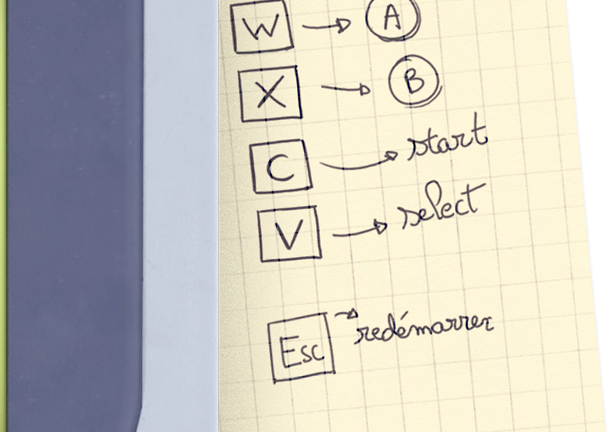 W → A
X → B
C → start
V → select
Esc → redémarrer